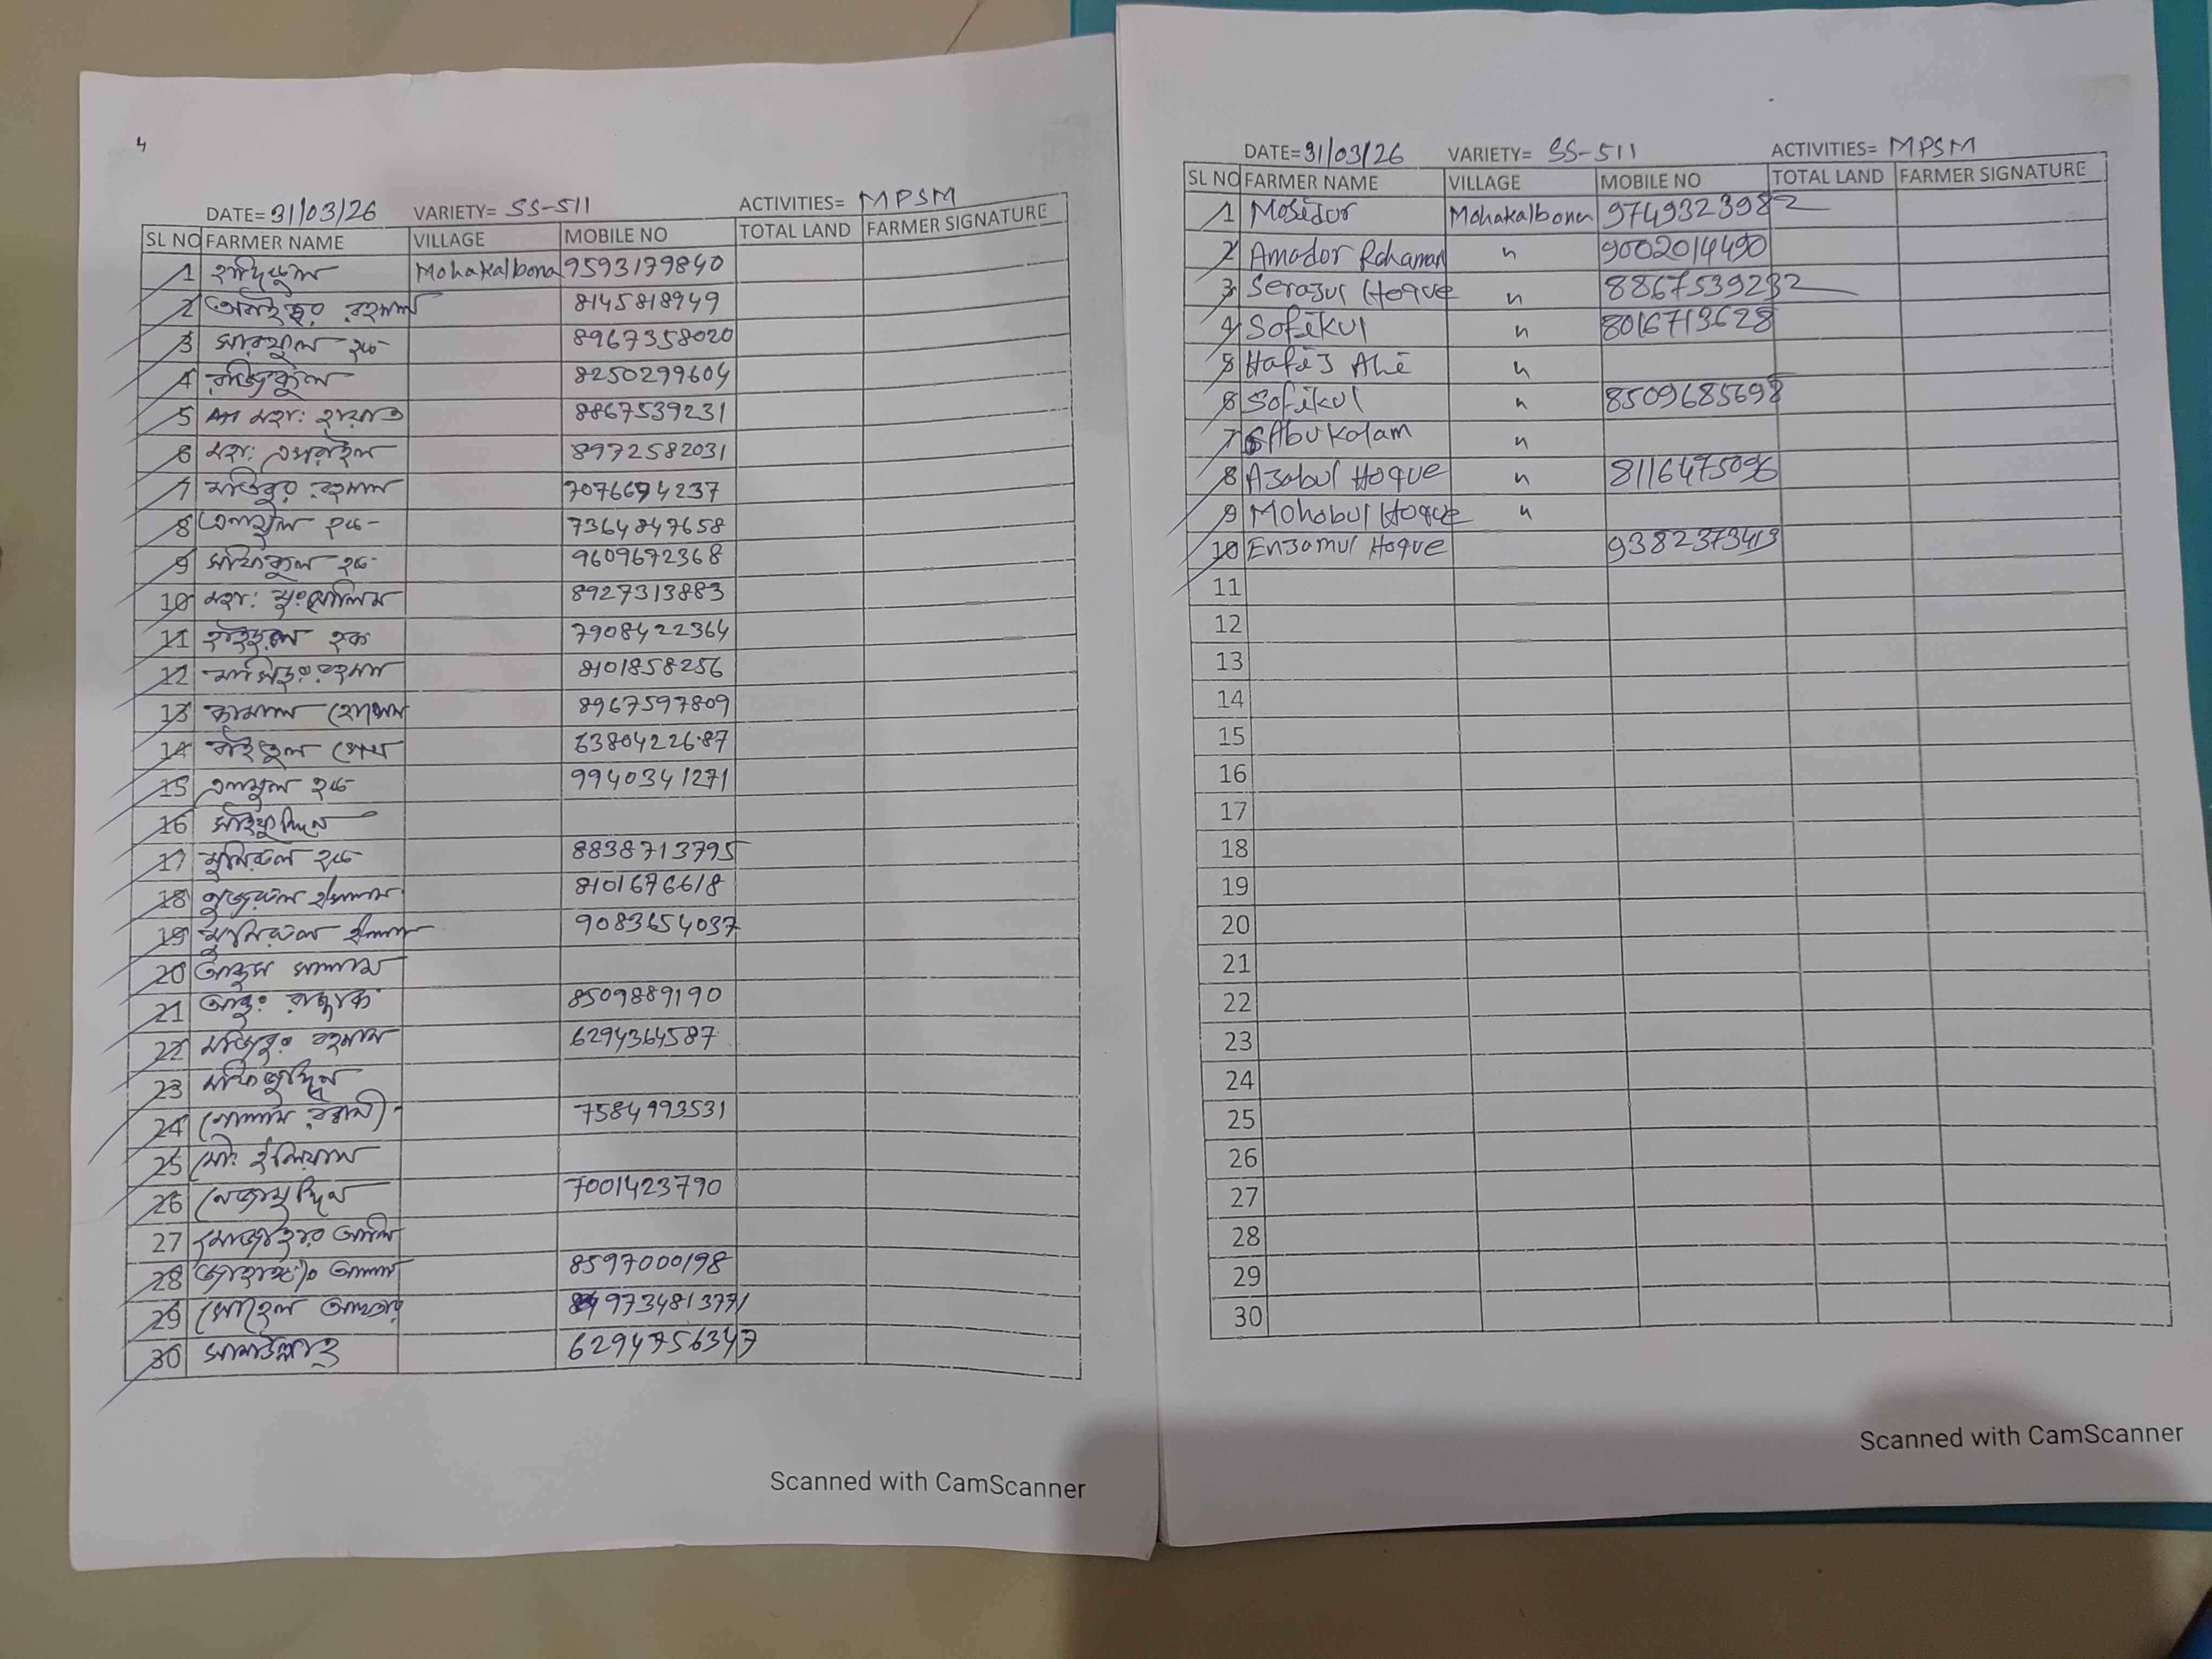 4
DATE= 31/03/26 VARIETY= SS-511 ACTIVITIES= MPSM
SL NO FARMER NAME VILLAGE MOBILE NO TOTAL LAND FARMER SIGNATURE
1 Mohakalbona 9593179840
2 রহমান 8145818949
3 হক 8967358020
4 8250299604
5 মহা: হায়াত 8867539231
6 মহা: এসরাইল 8972582031
7 মতিবুর রহমান 7076694237
8 হক 7364847658
9 সফিকুল হক 9609672368
10 মহা: 8927313883
11 হক 7908422364
12 রহমান 8101858256
13 কামাল হোসেন 8967597809
14 সেখ 6380422687
15 এনামুল হক 9940341271
16 সাইফুদ্দিন
17 মুনিরুল হক 8838713795
18 নুজরুল ইসলাম 8101676618
19 মুনিরুল ইসলাম 9083654037
20 সালাম
21 আব্দু: রাজ্জাক 8509889190
22 মজিবুর রহমান 6294364587
23 মফিজুদ্দিন
24 গোলাম রব্বানী 7584993531
25 মো: ইলিয়াস
26 নেজামুদ্দিন 7001423790
27 মোজাহার আলি
28 জাহাঙ্গীর আলম 8597000198
29 সোহেল আখতার 9734813771
30 সানাউল্লাহ 6294756347
Scanned with CamScanner
DATE= 31/03/26 VARIETY= SS-511 ACTIVITIES= MPSM
SL NO FARMER NAME VILLAGE MOBILE NO TOTAL LAND FARMER SIGNATURE
1 Mosidur Mohakalbona 9749323982
2 Amador Rahaman " 9002014490
3 Serajul Hoque " 8867539232
4 Sofikul " 8016713628
5 Hafij Ali "
6 Sofikul " 8509685698
7 Abu Kalam "
8 Azabul Hoque " 8116475096
9 Mohobul Hoque "
10 Enjamul Hoque 9382373413
11
12
13
14
15
16
17
18
19
20
21
22
23
24
25
26
27
28
29
30
Scanned with CamScanner